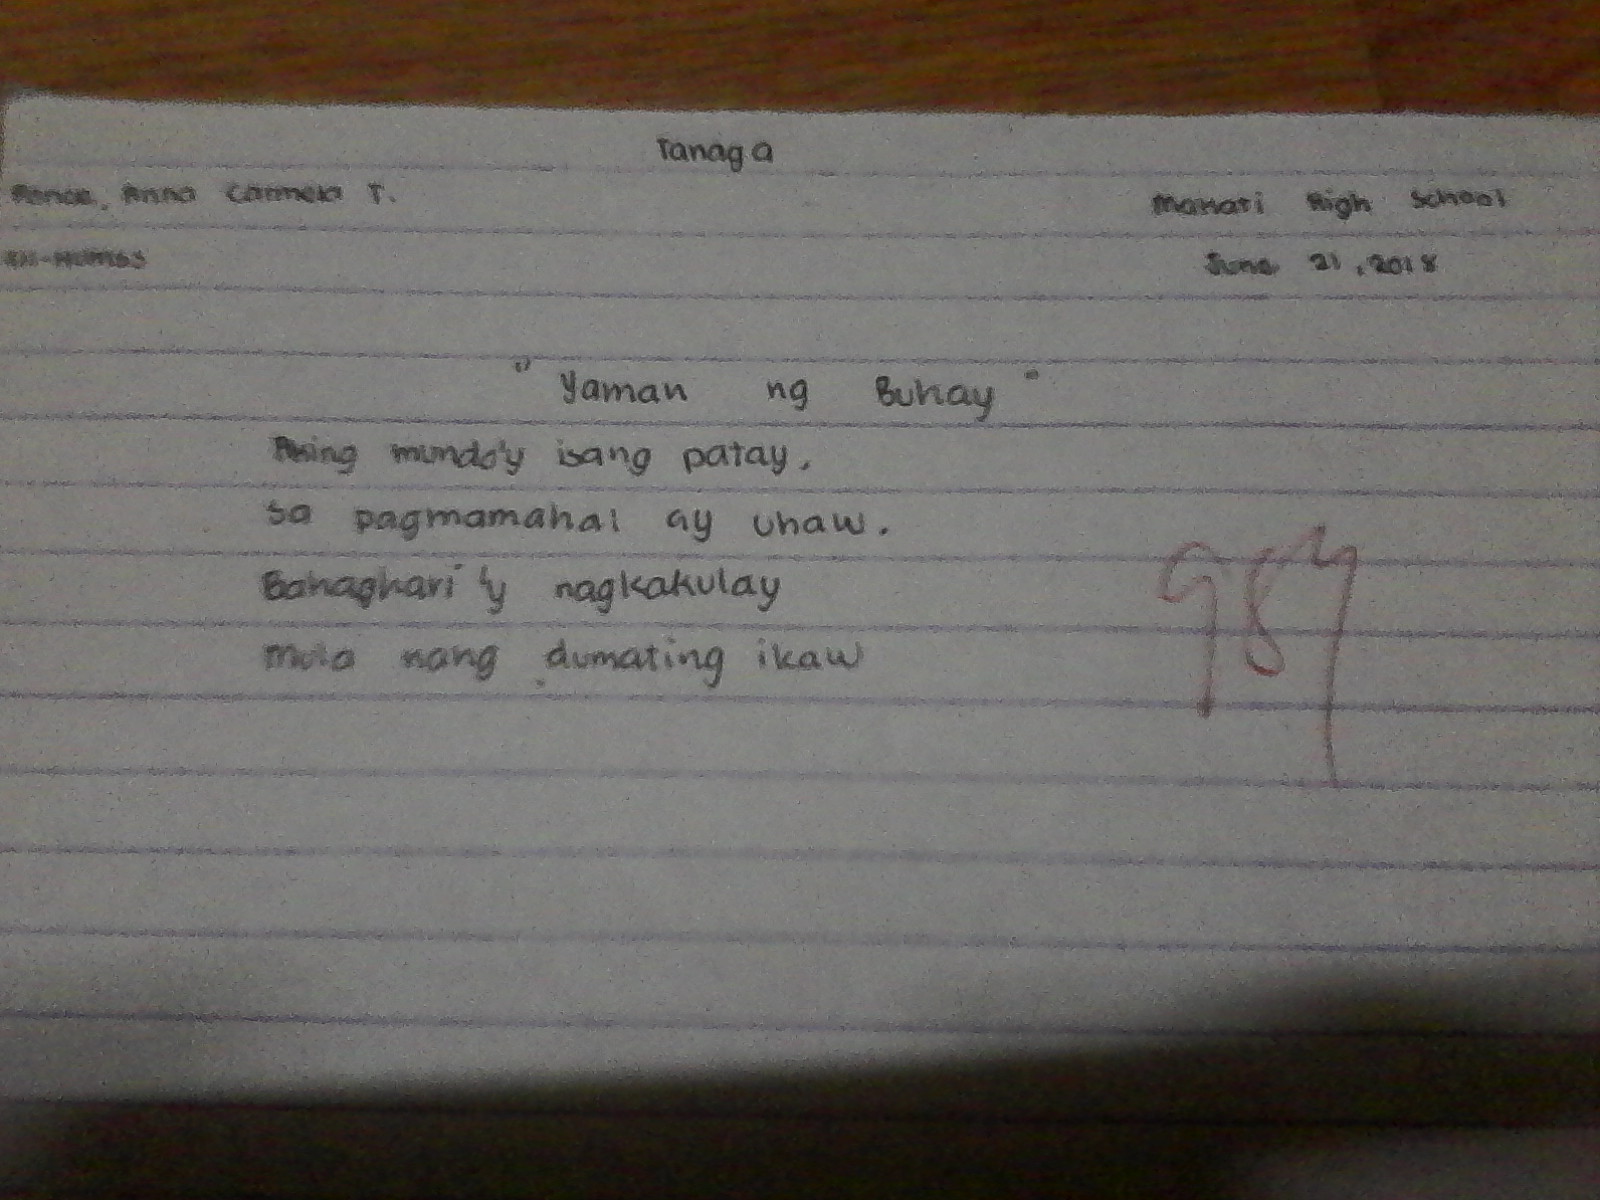 Tanaga
Ponce, Anna Carmela T.
Makati High School
XII-HUMSS
June 21, 2018
" Yaman ng Buhay "
Aking mundo'y isang patay,
sa pagmamahal ay uhaw.
Bahaghari'y nagkakulay
mula nang dumating ikaw